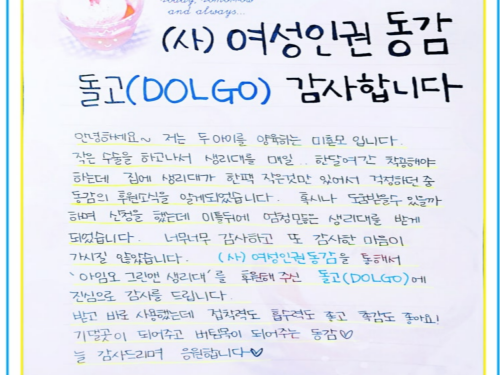 today, tomorrow
and always...
(사) 여성인권 동감
돌고(DOLGO) 감사합니다
안녕하세요~ 저는 두아이를 양육하는 미혼모 입니다.
작은 수술을 하고나서 생리대를 매일.. 한달여간 착용해야
하는데 집에 생리대가 한팩 작은것만 있어서 걱정하던 중
동감의 후원소식을 알게되었습니다. 혹시나 도움받을수 있을까
하며 신청을 했는데 이틀뒤에 엄청많은 생리대를 받게
되었습니다. 너무너무 감사하고 또 감사한 마음이
가시질 않았습니다. (사)여성인권동감을 통해서
'아임오 그린앤 생리대'를 후원해 주신 돌고(DOLGO)에
진심으로 감사를 드립니다.
받고 바로 사용했는데 접착력도 흡수력도 좋고 촉감도 좋아요!
기댈곳이 되어주고 버팀목이 되어주는 동감♡
늘 감사드리며 응원합니다~♡